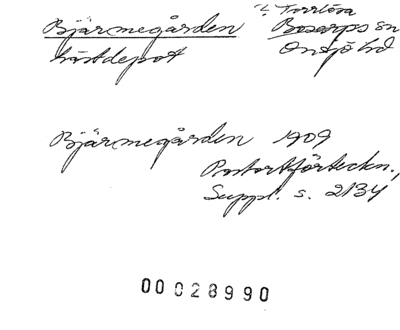 Bjärmegården
hästdepot
Torrlösa
Bosarps sn
Onsjö hd
Bjärmegården 1909
Postortförteckn.,
Suppl. s. 2134
00028990